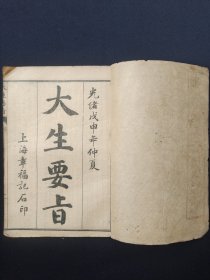 光緒戊申年仲夏
大生要旨
上海章福記石印